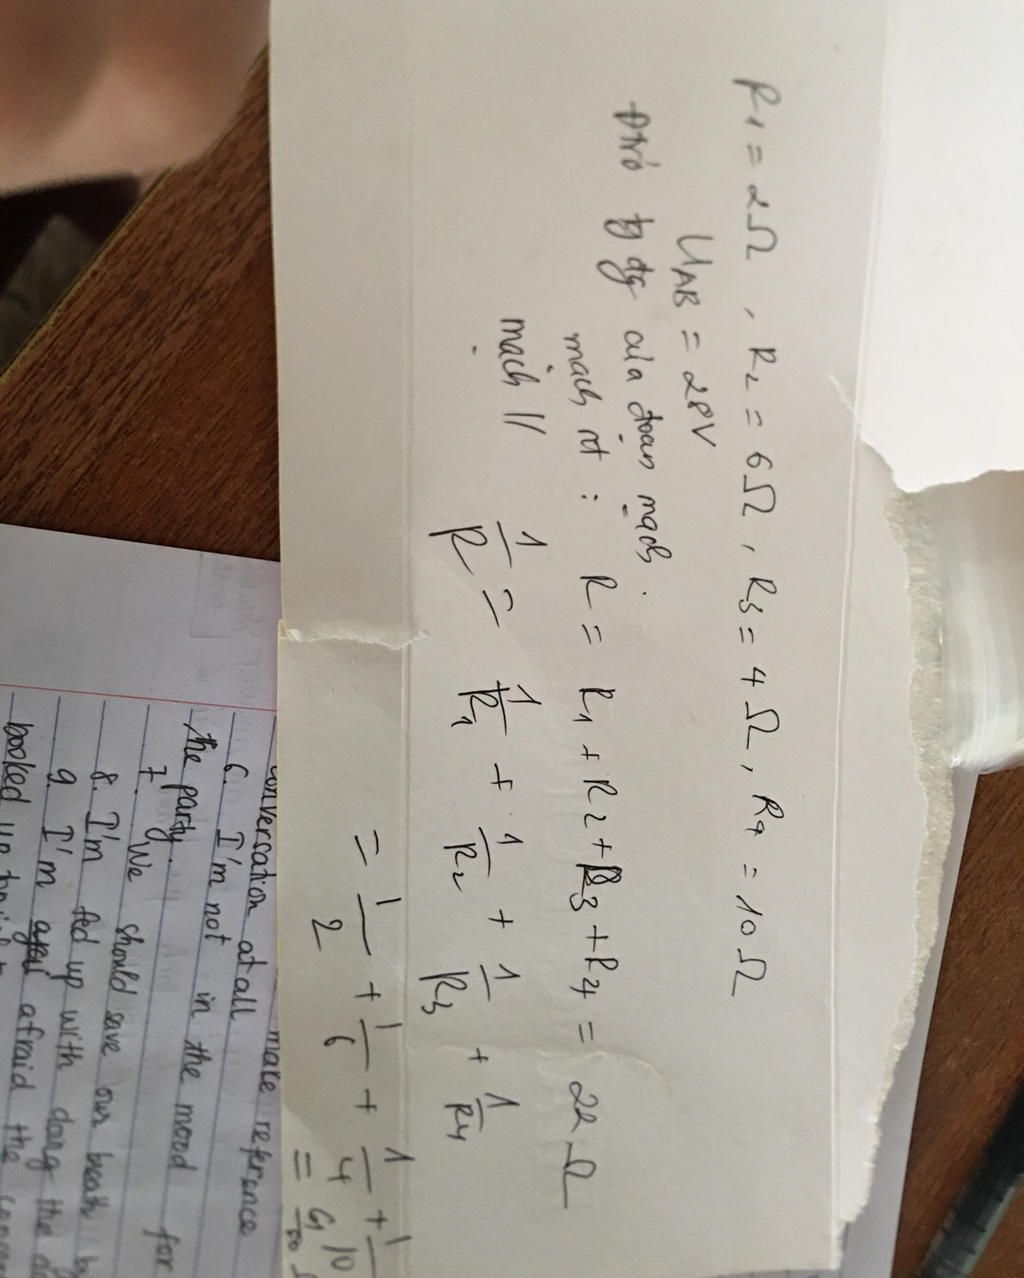 R1 = 2Ω , R2 = 6Ω , R3 = 4Ω , R4 = 10Ω
UAB = 28V
Đtrở tg đg của đoạn mạch .
mạch nt : R = R1 + R2 + R3 + R4 = 22 Ω
mạch // 1/R = 1/R1 + 1/R2 + 1/R3 + 1/R4
= 1/2 + 1/6 + 1/4 + 1/10
= 61/60
conversation at all make reference
6. I'm not in the mood for
the party.
7. We should save our breath
8. I'm fed up with
9. I'm afraid the
booked up